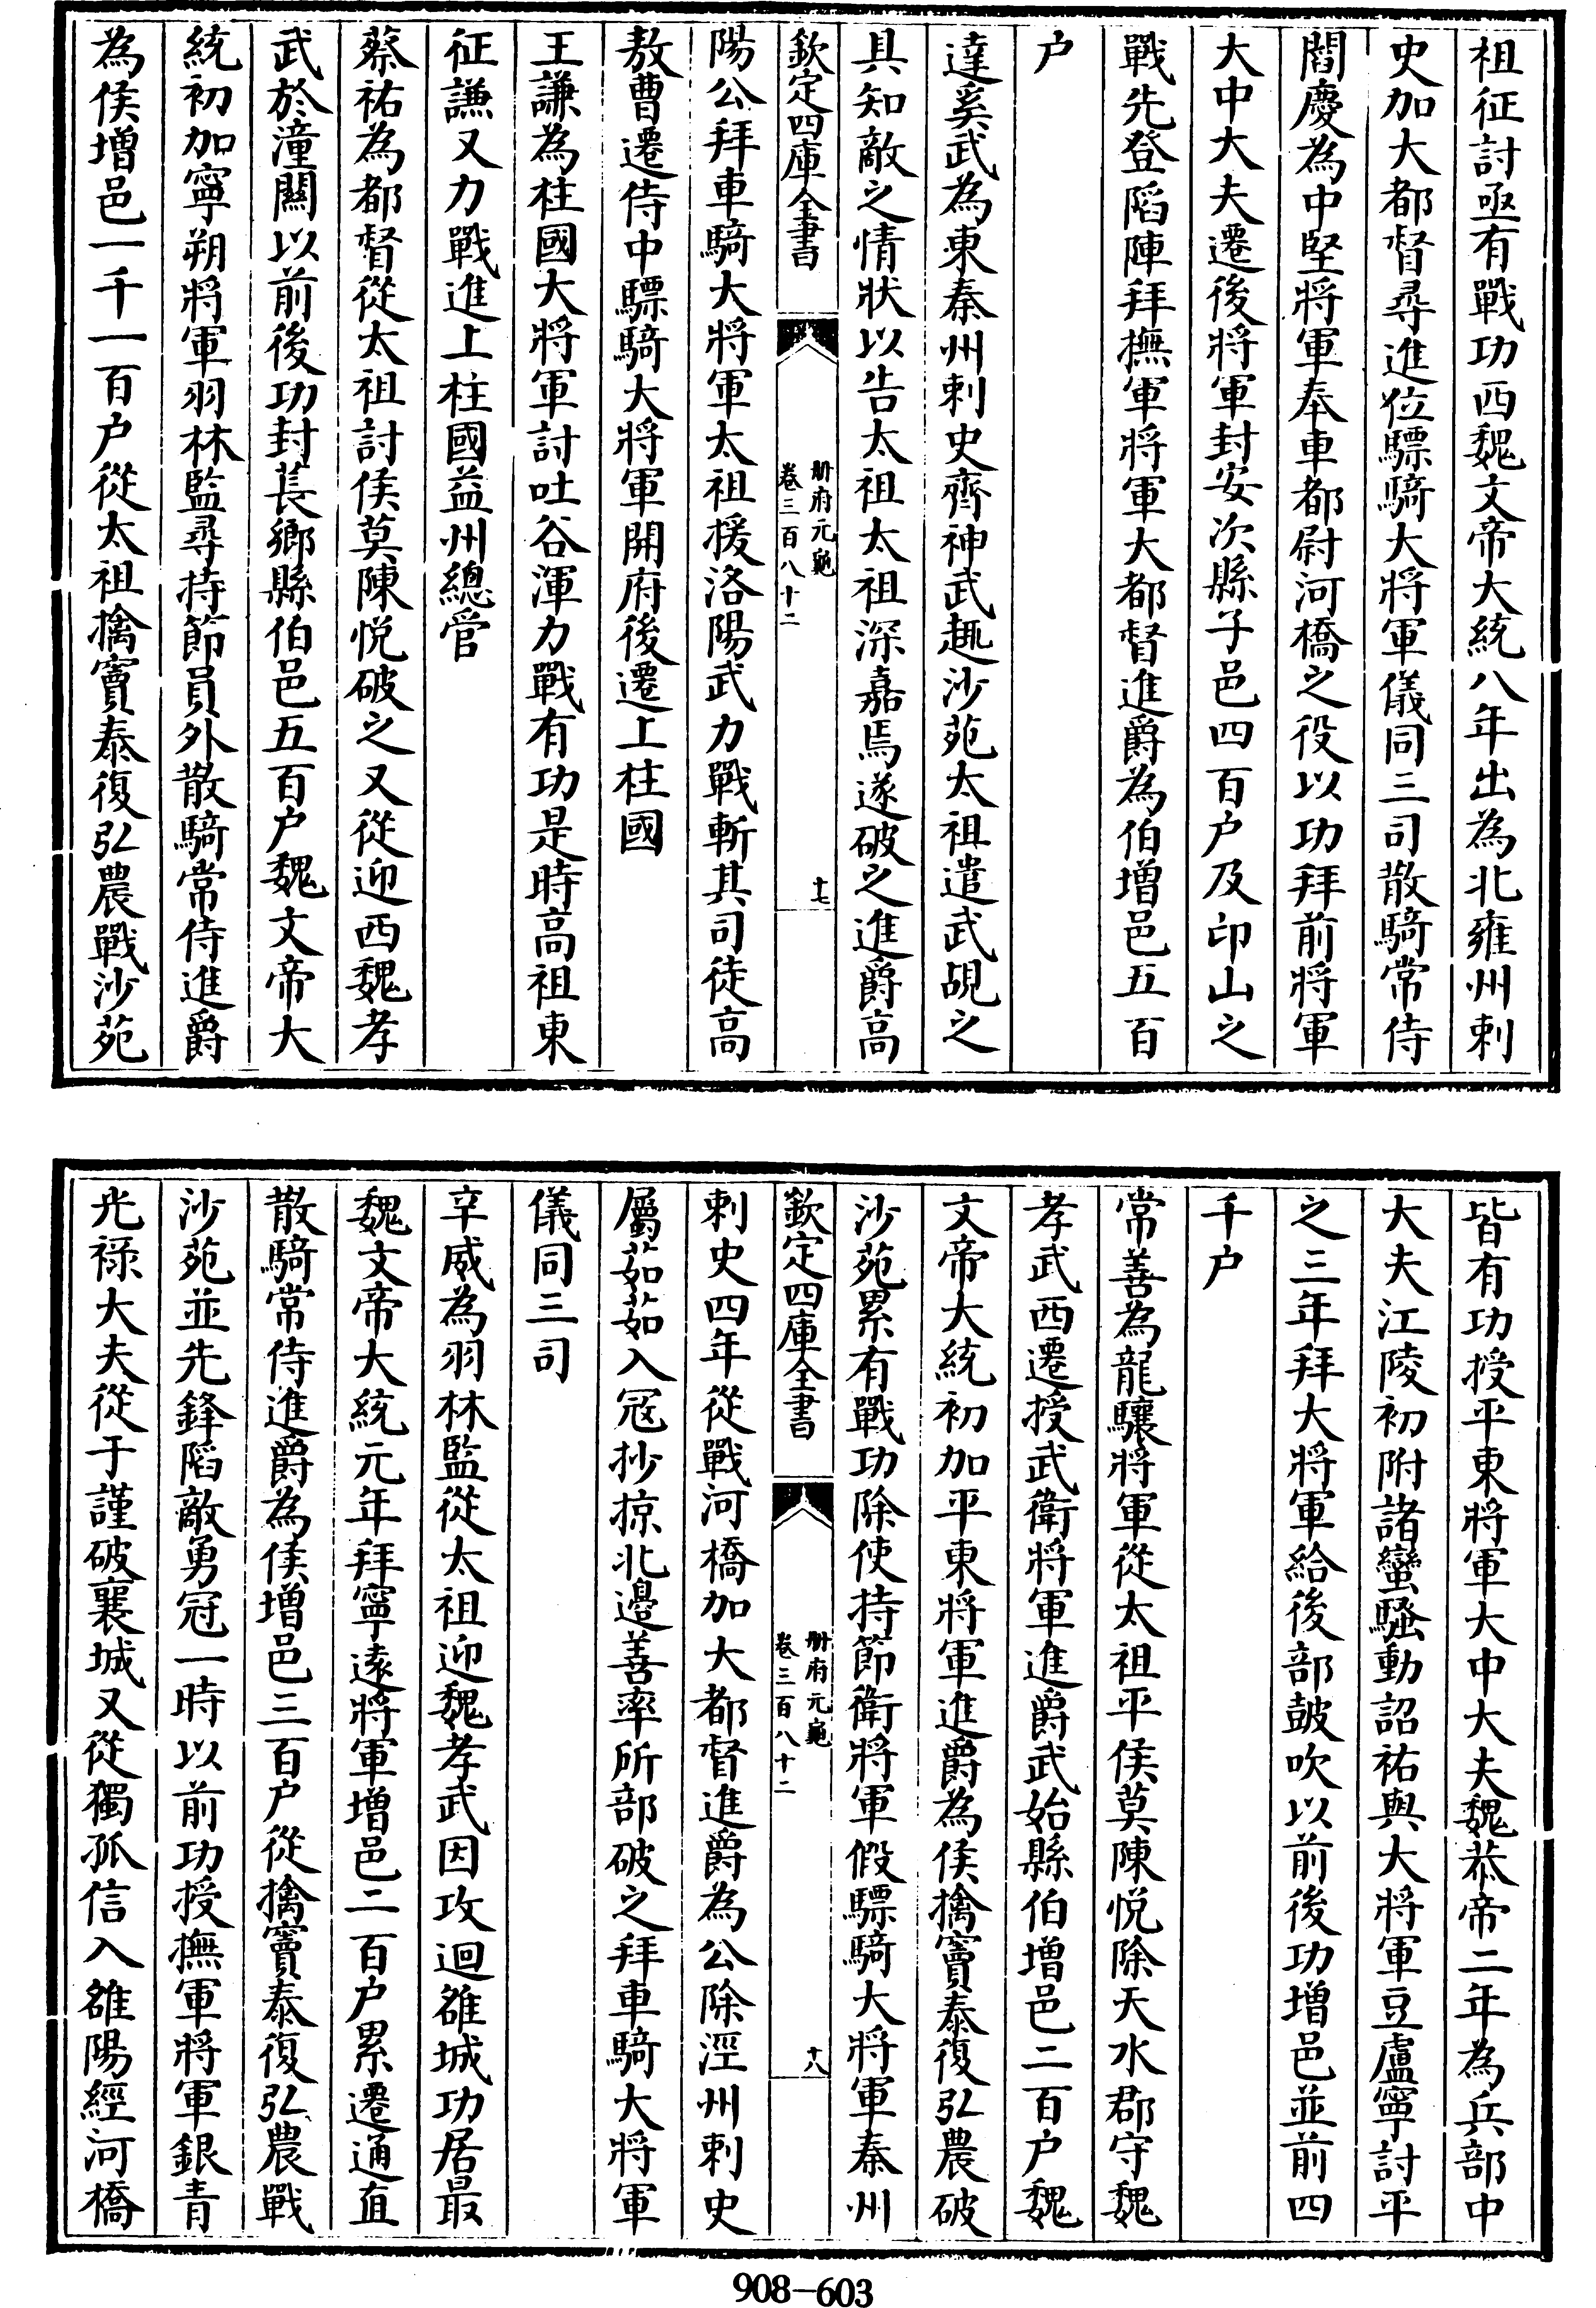 祖征討亟有戰功西魏文帝大統八年出為北雍州刺
史加大都督尋進位驃騎大將軍儀同三司散騎常侍
閻慶為中堅將軍奉車都尉河橋之役以功拜前將軍
大中大夫遷後將軍封安次縣子邑四百户及印山之
戰先登陷陣拜撫軍將軍大都督進爵為伯增邑五百
户
達奚武為東秦州刺史齊神武趣沙苑太祖遣武覘之
具知敵之情狀以告太祖太祖深嘉焉遂破之進爵高
欽定四庫全書
册府元龜
卷三百八十二
十七
陽公拜車騎大將軍太祖援洛陽武力戰斬其司徒高
敖曹遷侍中驃騎大將軍開府後遷上柱國
王謙為柱國大將軍討吐谷渾力戰有功是時高祖東
征謙又力戰進上柱國益州總管
蔡祐為都督從太祖討侯莫陳悦破之又從迎西魏孝
武於潼關以前後功封萇鄉縣伯邑五百户魏文帝大
統初加寧朔將軍羽林監尋持節員外散騎常侍進爵
為侯增邑一千一百户從太祖擒竇泰復弘農戰沙苑
皆有功授平東將軍大中大夫魏恭帝二年為兵部中
大夫江陵初附諸蠻騷動詔祐與大將軍豆盧寧討平
之三年拜大將軍給後部鼓吹以前後功增邑並前四
千户
常善為龍驤將軍從太祖平侯莫陳悦除天水郡守魏
孝武西遷授武衛將軍進爵武始縣伯增邑二百户魏
文帝大統初加平東將軍進爵為侯擒竇泰復弘農破
沙苑累有戰功除使持節衛將軍假驃騎大將軍秦州
欽定四庫全書
册府元龜
卷三百八十二
十八
刺史四年從戰河橋加大都督進爵為公除涇州刺史
屬茹茹入冦抄掠北邊善率所部破之拜車騎大將軍
儀同三司
辛威為羽林監從太祖迎魏孝武因攻迴雒城功居最
魏文帝大統元年拜寧遠將軍增邑二百户累遷通直
散騎常侍進爵為侯增邑三百户從擒竇泰復弘農戰
沙苑並先鋒陷敵勇冠一時以前功授撫軍將軍銀青
光禄大夫從于謹破襄城又從獨孤信入雒陽經河橋
908-603